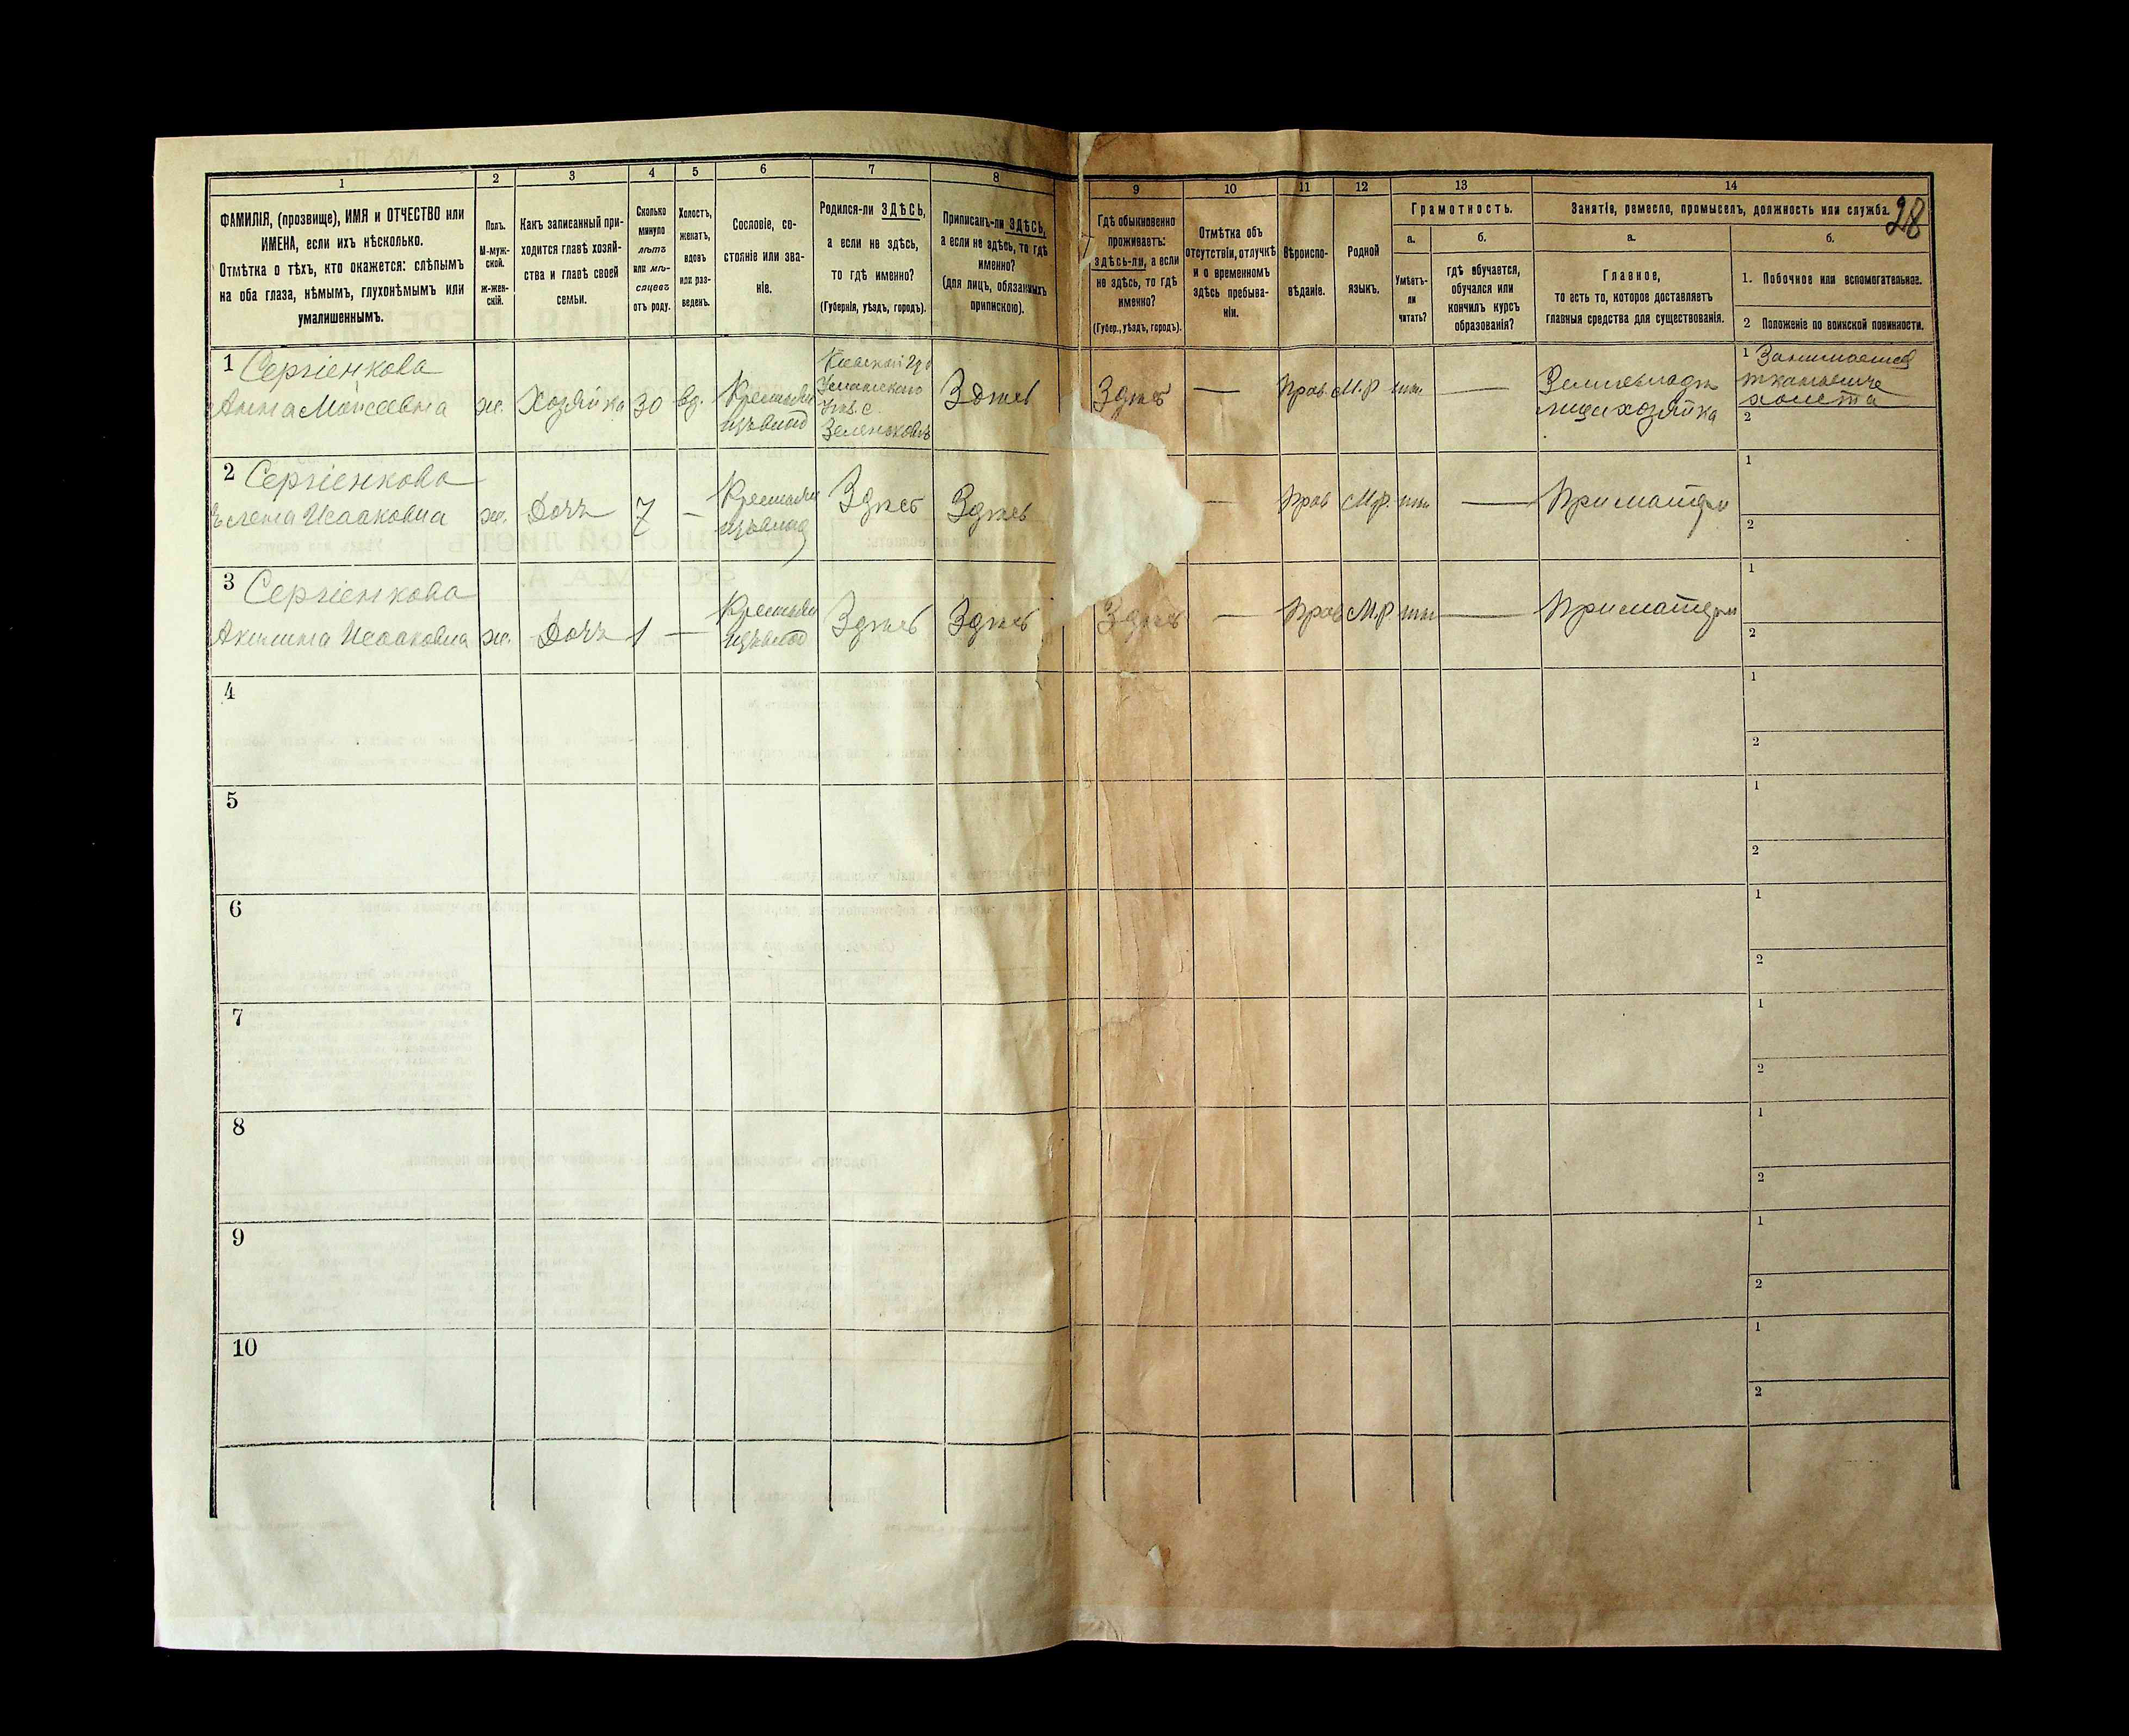 28
1 2 3 4 5 6 7 8 9 10 11 12 13 14
ФАМИЛІЯ, (прозвище), ИМЯ и ОТЧЕСТВО или
ИМЕНА, если ихъ нѣсколько.
Отмѣтка о тѣхъ, кто окажется: слѣпымъ
на оба глаза, нѣмымъ, глухонѣмымъ или
умалишеннымъ.
Полъ.
М-муж-
ской.
Ж-жен-
скій.
Какъ записанный при-
ходится главѣ хозяй-
ства и главѣ своей
семьи.
Сколько
минуло
лѣтъ
или мѣ-
сяцевъ
отъ роду.
Холостъ,
женатъ,
вдовъ
или раз-
веденъ.
Сословіе, со-
стояніе или зва-
ніе.
Родился-ли ЗДѢСЬ,
а если не здѣсь,
то гдѣ именно?
(Губернія, уѣздъ, городъ).
Приписанъ-ли ЗДѢСЬ,
а если не здѣсь, то гдѣ
именно?
(для лицъ, обязанныхъ
припискою).
Гдѣ обыкновенно
проживаетъ:
здѣсь-ли, а если
не здѣсь, то гдѣ
именно?
(Губер., уѣздъ, городъ).
Отмѣтка объ
отсутствіи, отлучкѣ
и о временномъ
здѣсь пребыва-
ніи.
Вѣроиспо-
вѣданіе.
Родной
языкъ.
Грамотность.
а.
Умѣетъ-
ли
читать?
б.
гдѣ обучается,
обучался или
кончилъ курсъ
образованія?
Занятіе, ремесло, промыселъ, должность или служба.
а.
Главное,
то есть то, которое доставляетъ
главныя средства для существованія.
б.
1. Побочное или вспомогательное.
2 Положеніе по воинской повинности.
1 Сергіенкова
Анна Моисеевна
ж. Хозяйка 30 вд.
Крестьян
изъ влад
Кіевской губ
Уманскаго
уѣз. с.
Зеленьковъ
Здѣсь
Здѣсь — Прав. М.Р нѣт —
Земледѣлец
хозяйка
1 Занимается
тканьемъ
холста
2
2 Сергіенкова
Елена Исааковна
ж. Дочь 7 —
Крестьян
изъ влад
Здѣсь Здѣсь
— Прав М.Р. нѣт — При матери
1
2
3 Сергіенкова
Акилина Исааковна
ж. Дочь 1 —
Крестьян
изъ влад
Здѣсь Здѣсь
Здѣсь — Прав М.Р нѣт — При матери
1
2
4
1
2
5
1
2
6
1
2
7
1
2
8
1
2
9
1
2
10
1
2